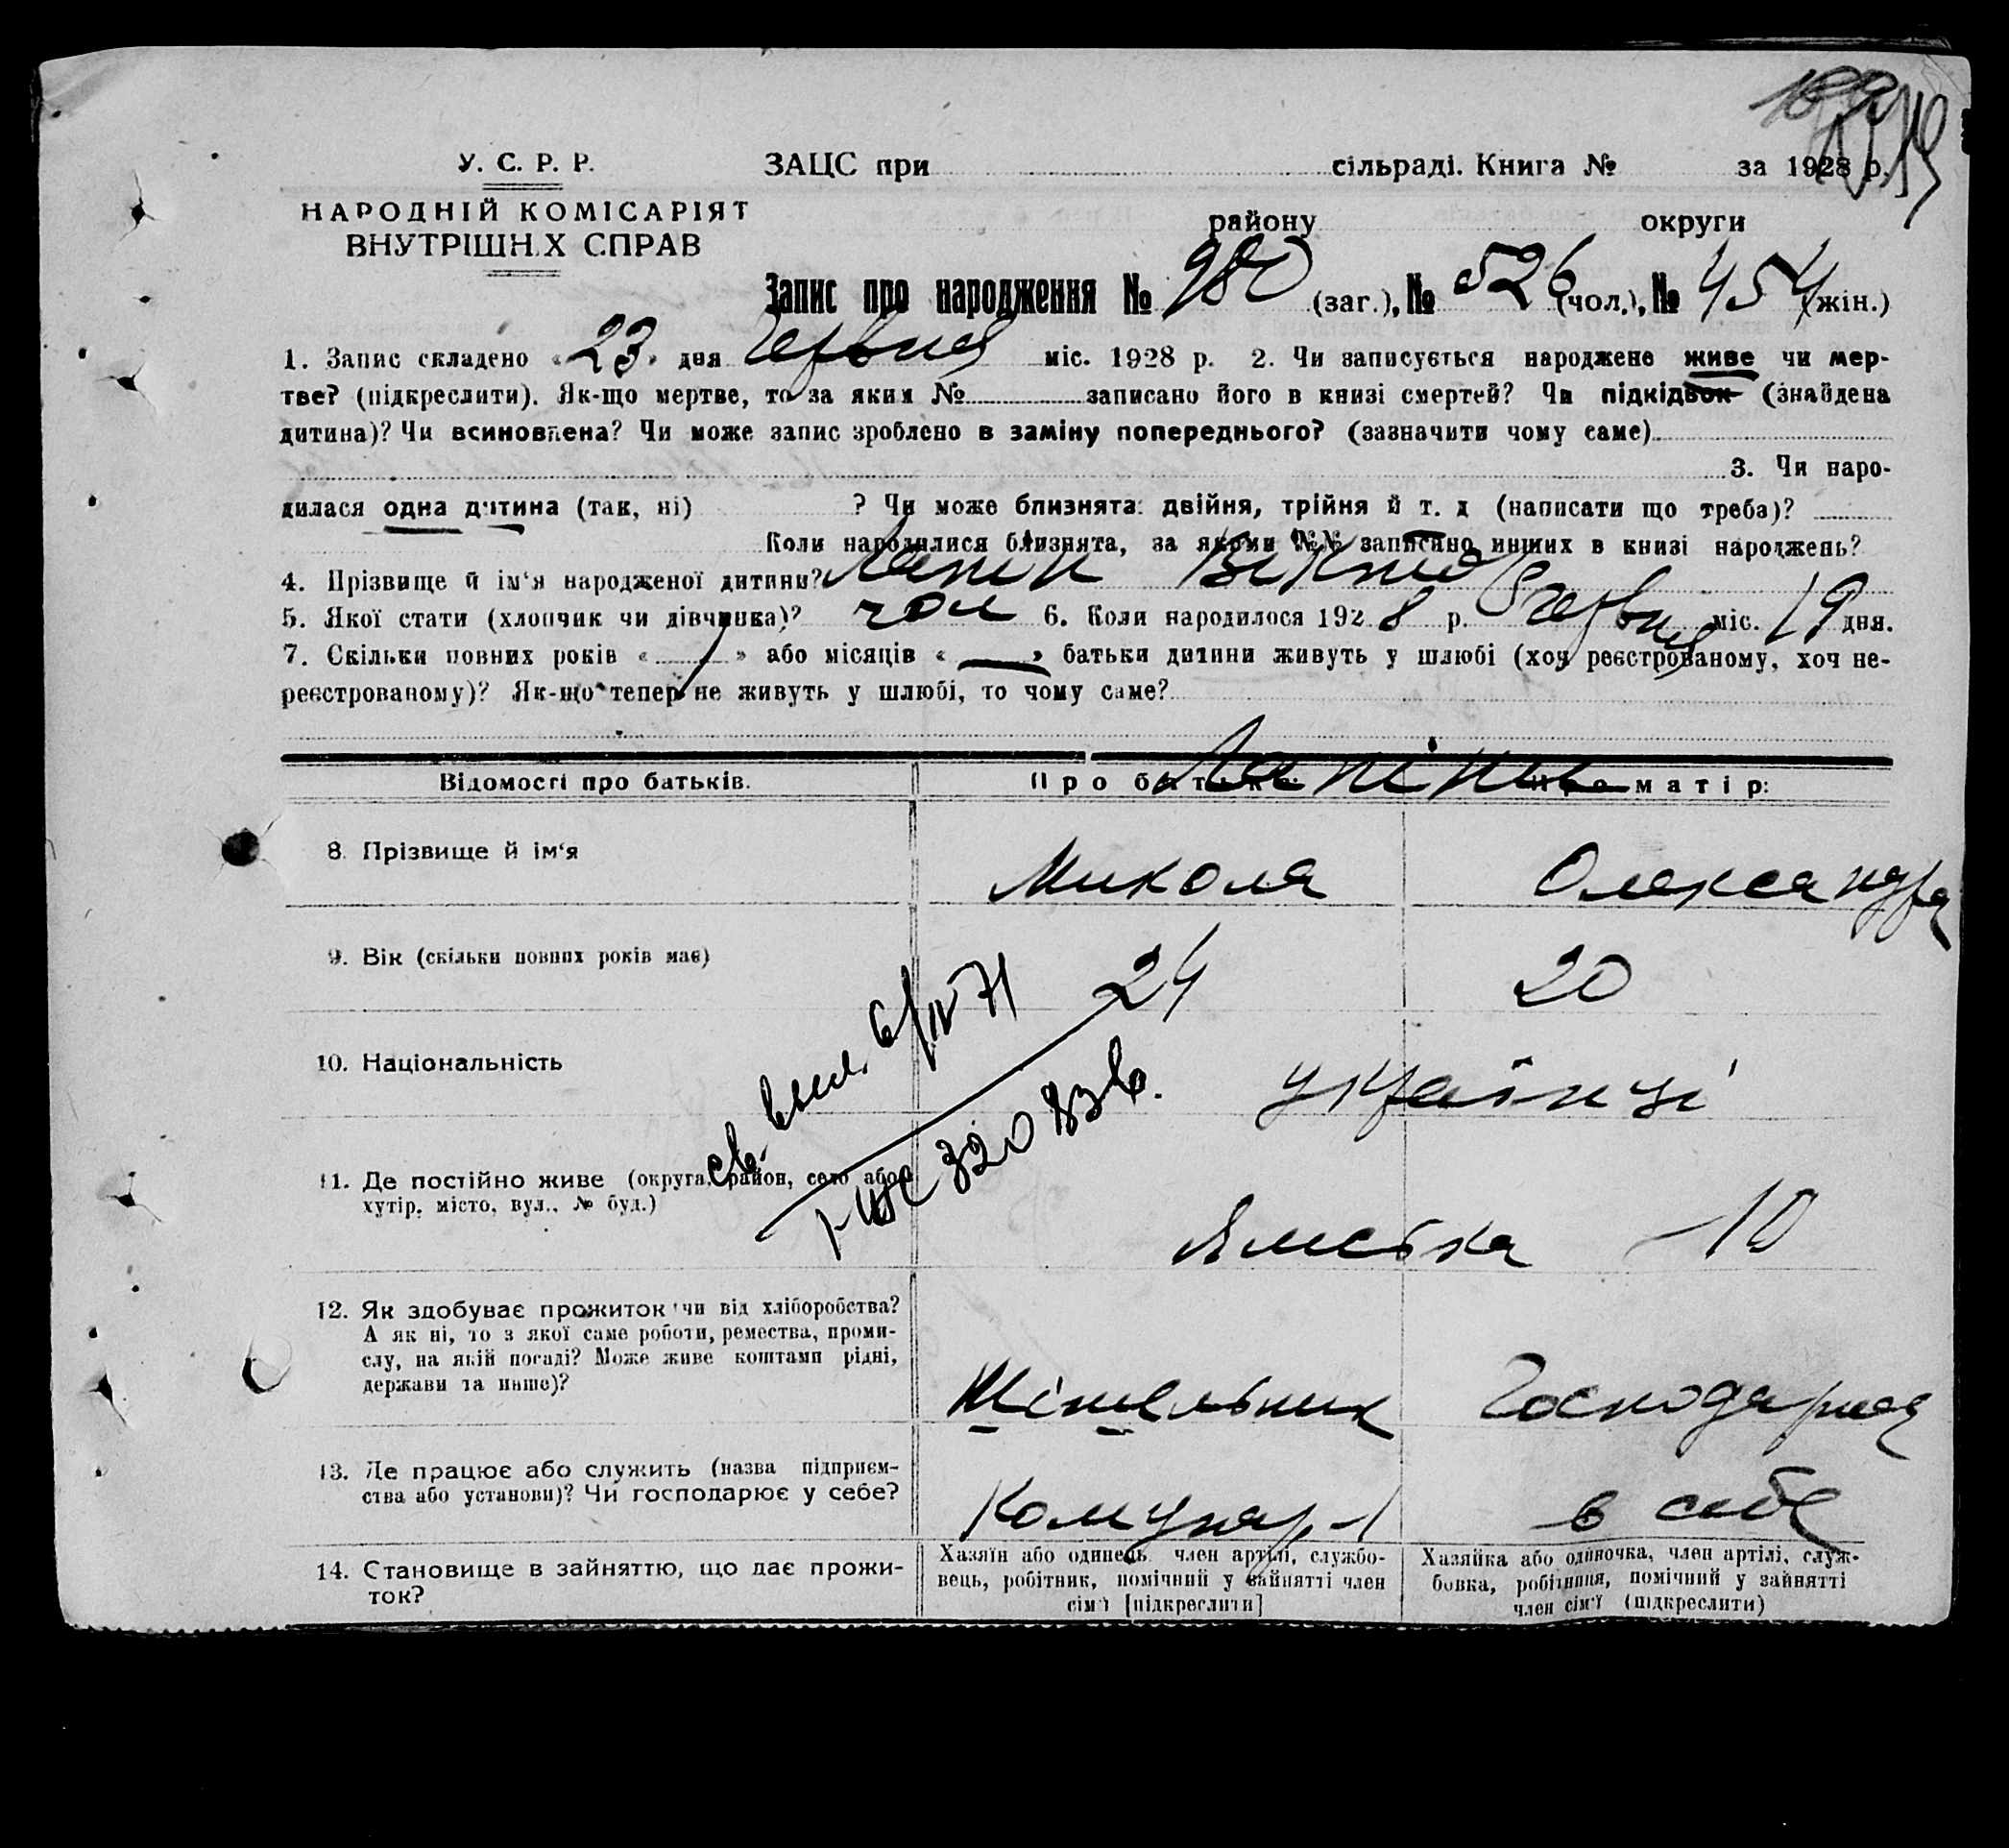 У. С. Р. Р.
НАРОДНІЙ КОМІСАРІЯТ
ВНУТРІШН.Х СПРАВ
ЗАЦС при сільраді. Книга № за 1928 р.
району округи
Запис про народження № 980 (заг.), № 526 (чол.), № 454 (жін.)
1. Запис складено «23» дня червня міс. 1928 р. 2. Чи записується народжене живе чи мер-
тве? (підкреслити). Як-що мертве, то за яким № записано його в книзі смертей? Чи підкідьок (знайдена
дитина)? Чи всиновлена? Чи може запис зроблено в заміну попереднього? (зазначити чому саме)
3. Чи наро-
дилася одна дитина (так, ні) ? Чи може близнята: двійня, трійня й т. д (написати що треба)?
Коли народилися близнята, за якими №№ записано инших в книзі народжень?
4. Прізвище й ім‘я народженої дитини? Лапін Віктор
5. Якої стати (хлопчик чи дівчинка)? чол 6. Коли народилося 1928 р. червня міс. 19 дня.
7. Скільки повних років « » або місяців « — » батьки дитини живуть у шлюбі (хоч реєстрованому, хоч не-
реєстрованому)? Як-що тепер не живуть у шлюбі, то чому саме?
Відомості про батьків. Про батька: Про матір:
Лапіни
8. Прізвище й ім‘я Микола Олександра
9. Вік (скільки повних років має) 24 20
10. Національність українці
11. Де постійно живе (округа, район, село або
хутір, місто, вул., № буд.) Ямська -10
св. выд. 6/IV 71
320836.
12. Як здобуває прожиток чи від хліборобства?
А як ні, то з якої саме роботи, ремества, проми-
слу, на якій посаді? Може живе коштами рідні,
держави та инше)? Господарка
13. Де працює або служить (назва підприєм-
ства або установи)? Чи господарює у себе? Комунар. в себе
14. Становище в зайняттю, що дає прожи-
ток?
Хазяїн або одинець член артілі, службо-
вець, робітник, помічний у зайнятті член
сім‘ї [підкреслити]
Хазяйка або одиночка, член артілі, служ-
бовка, робітниця, помічний у зайнятті
член сім‘ї (підкреслити)